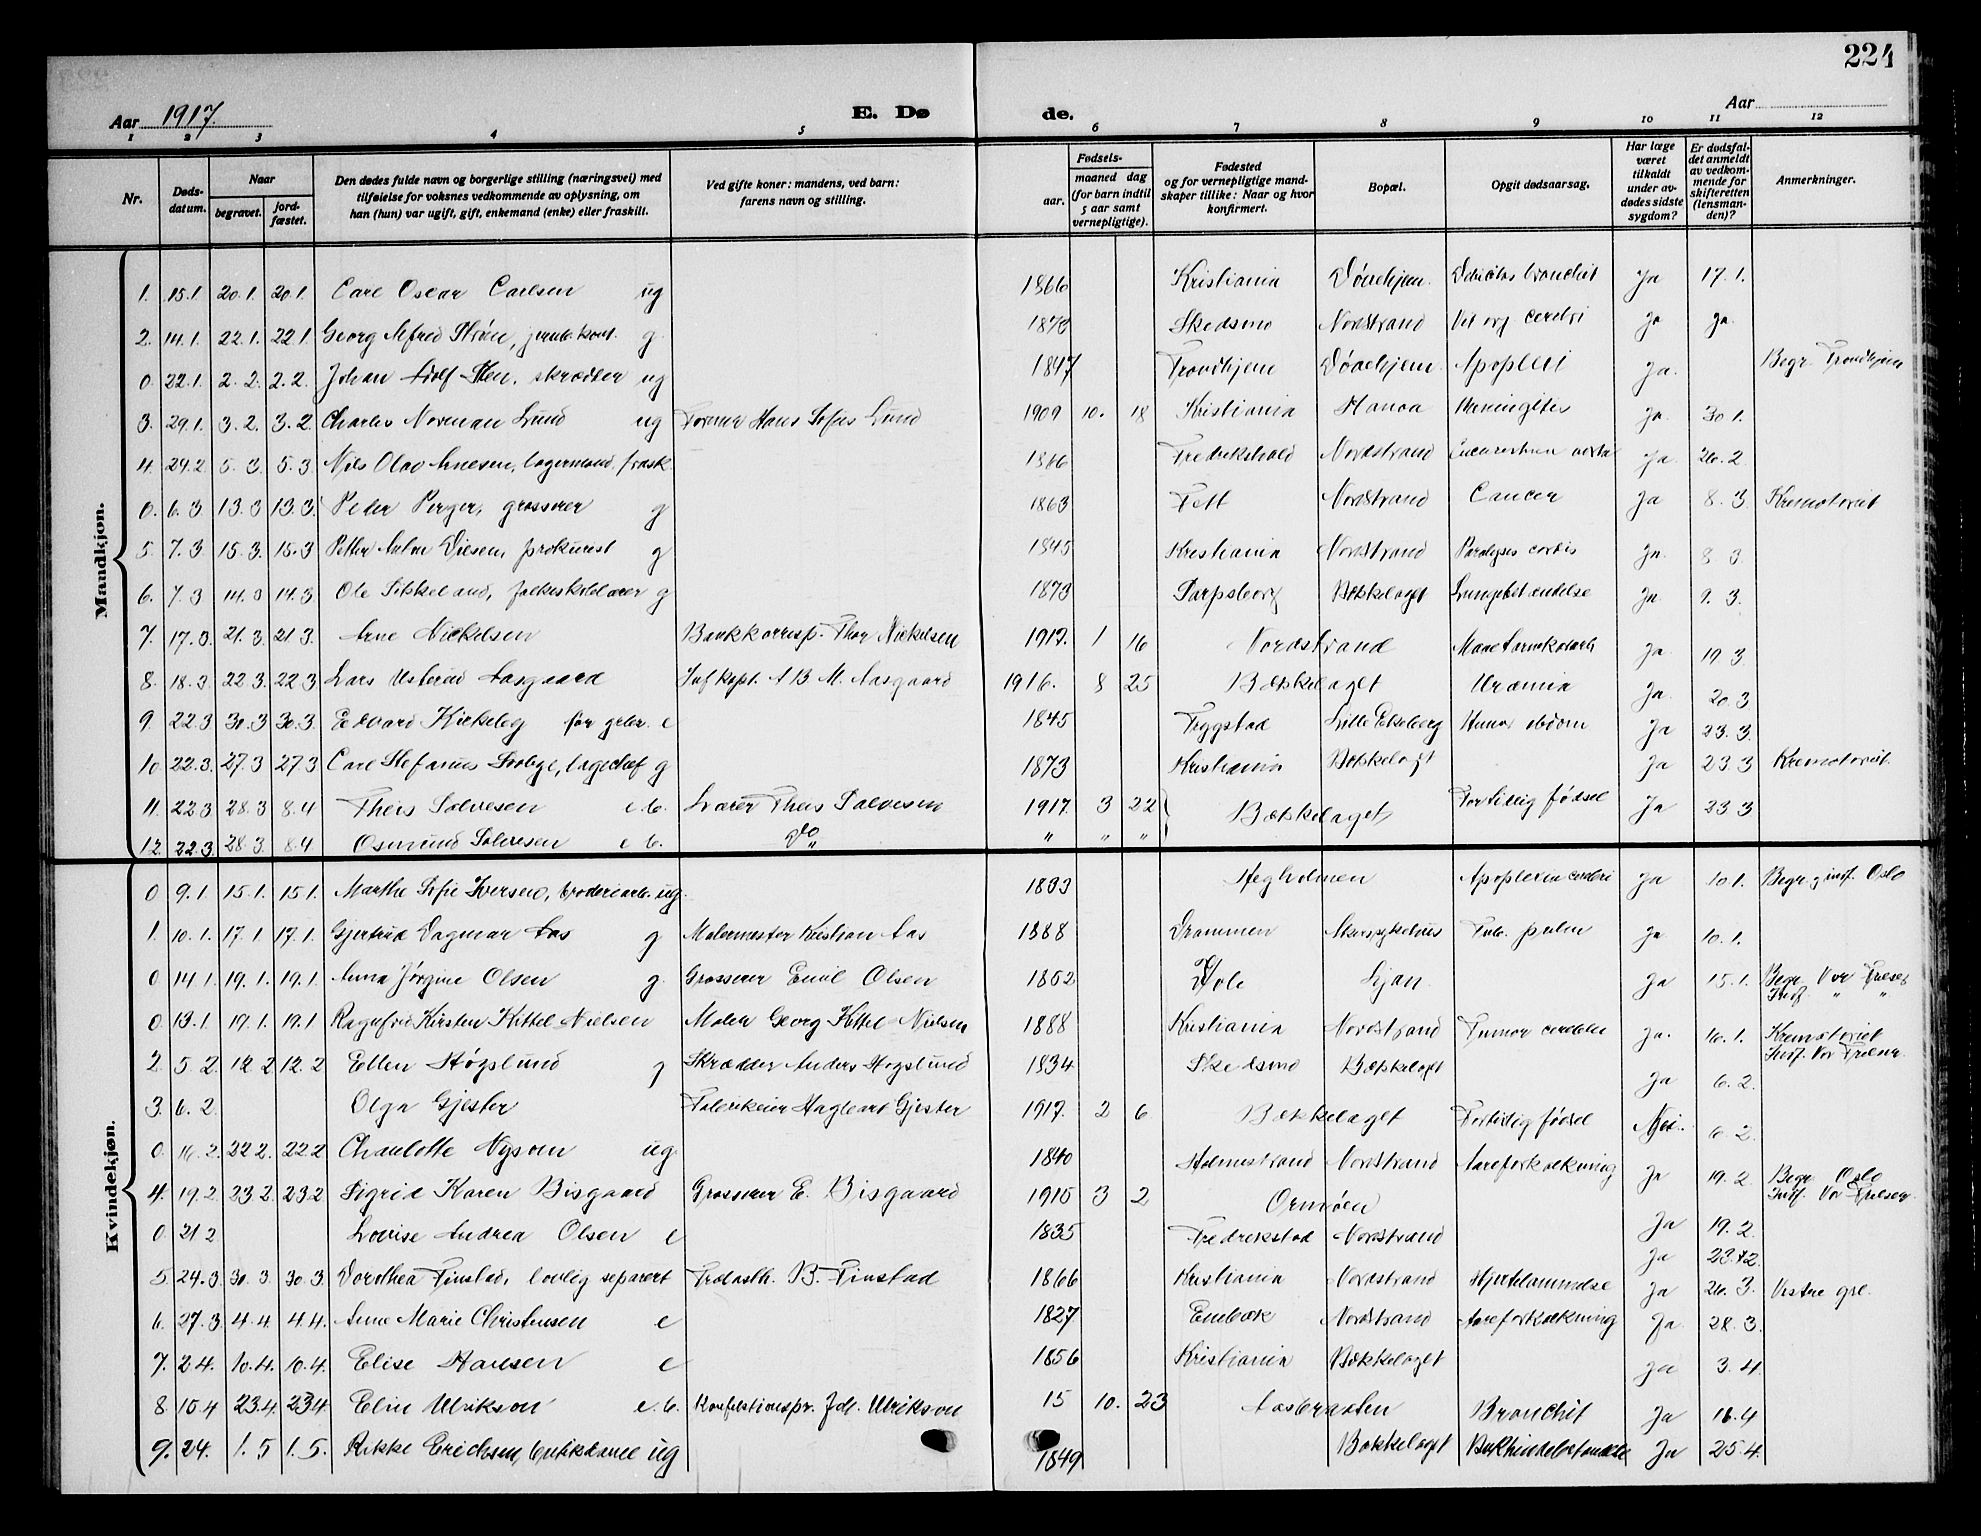 224
Aar 1917. E. Dø de. Aar
1 2 3 4 5 6 7 8 9 10 11 12
Nr. Dødsdatum. Naar begravet. jordfæstet. Den dødes fulde navn og borgerlige stilling (næringsvei) med tilføielse for voksnes vedkommende av oplysning, om han (hun) var ugift, gift, enkemand (enke) eller fraskilt. Ved gifte koner: mandens, ved barn: farens navn og stilling. Fødsels- aar. maaned dag (for barn indtil 5 aar samt vernepligtige). Fødested og for vernepligtige mandskaper tillike: Naar og hvor konfirmert. Bopæl. Opgit dødsaarsag. Har læge været tilkaldt under avdødes sidste sygdom? Er dødsfaldet anmeldt av vedkommende for skifteretten (lensmanden)? Anmerkninger.
Mandkjøn.
1. 15.1. 20.1. 20.1. Carl Oscar Carlsen ug 1866 Kristiania Døvehjem. Ja 17.1.
2. 14.1. 22.1. 22.1. Georg Alfred g. 1873 Skedsmo Nordstrand cerebri Ja Ja.
0. 22.1. 2.2. 2.2. Johan Adolf Sten, skrædder ug 1847 Trondhjem Døvehjem. Apoplexi Ja. Begr. Trondhjem
3. 29.1. 3.2. 3.2. Charles Norman Lund ug Former Hans Sofus Lund 1909 10. 18 Kristiania Meningitis Ja. 30.1.
4. 24.2 5.3 5.3 Nils Olav Arnesen, lagermand, frask. Fredrikshald Nordstrand Ja. 26.2
0. 6.3 13.3 13.3. Peder grosserer g 1863 Fett Nordstrand Cancer Ja 8.3 Krematoriet
5. 7.3 15.3. 15.3 Petter prokurist g 1845 Kristiania Nordstrand Paralysis cordis Ja. 8 3
6. 7.3 14.3 14.3 Ole g 1873 Sarpsborg Bækkelaget Lungebetændelse Ja. 9.3.
7. 17.3. 21.3 21.3. Arne Nickelsen Bankkorresp. Thor Nickelsen 1917. 1 16 Nordstrand Ja 19 3
8. 18.3 22 3. 22 3 Lars Usterud Aasgaard M. Aasgaard 1916. 8 25 Bækkelaget Uræmia Ja. 20.3
9. 22.3 30.3 30.3. Edvard Kirkeby e 1845 Trygstad Lille Ekeberg Ja 23.3.
10 22.3. 27.3 27.3 Carl Stefanus g 1873 Kristiania Bækkelaget Ja 23.3 Krematoriet.
11. 22.3 28.3 8.4 Theis Salvesen e.b. Lærer Theis Salvesen 1917. 3 22 Bækkelaget, For tidlig fødsel Ja 23 3
12. 22.3. 28.3. 8.4 Osmund Salvesen e b. Do " " " "
Kvindekjøn.
0 9.1 15.1. 15.1. Marthe Sofie Iversen, broderiarb. ug. Heggholmen Apoplexia cerebri Ja 10.1. Begr. g inf. Oslo
1. 10.1. 17.1 17.1. Gjertrud Dagmar Aas g Malermester Kristian Aas 1888 Drammen Tub. pulm Ja 10.1.
0 14.1. 19.1. 19.1. Anna Jørgine Olsen g. Grosserer Emil Olsen 1862 Hole Ljan Ja 15.1. Begr. Vor Frelser
Inf. " "
0. 13.1. 19.1. 19.1 Ragnfrid Kirsten Kittel Nielsen Maler Georg Kittel-Nielsen 1888 Kristiania Nordstrand Tumor cerebri Ja. 16.1. Krematoriet
Inf. Vor Frelser.
2. 5 2. 12 2 12.2 Ellen Høgslund g Skrædder Anders Høgslund 1834 Skedsmo Bækkelaget Ja 6.2.
3. 6.2. Olga Gjester Fabrikeier Hagbart Gjester 1917. 2 6 Bækkelaget For tidlig fødsel Nei. 6.2.
0. 16.2. 22 2. 22 2 Charlotte ug. 1840 Holmestrand Nordstrand Aareforkalkning Ja 19.2 Begr. Oslo
Inf. Vor Frelser.
4. 19.2. 23 2. 23 2 Sigrid Karen Bisgaard Grosserer E. Bisgaard 1915 3 2 Ormøen Ja 19.2.
0. 21 2 Lovise Andrea Olsen e 1835 Fredrikstad Nordstrand Ja
5. 24.3. 30.3. 30.3 Dorothea Finstad, lovlig separert B. Finstad 1866 Kristiania Nordstrand Hjertelammelse Ja 26.3. Vestre grl.
6. 27.3 4.4. 4.4. Anne Marie Christensen e 1827 Enebak Nordstrand Aareforkalkning Ja. 28.3.
7. 2.4. 10.4. 10.4. Elise Hansen e 1856 Kristiania Bækkelaget Ja 3.4.
8 15.4 23.4. 23.4. Elin Ulrikson e.b. Joh. Ulrikson 15 10. 23 Aasbraaten Bronchit Ja 16.4
9. 24. 1.5 1.5. Rikke Erichsen, ug 1849 Bækkelaget Ja 25.4.